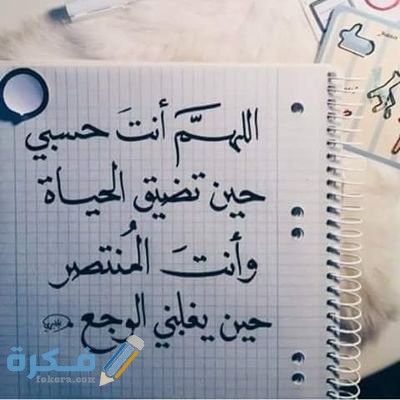 اللهمَّ أنتَ حسبي
حين تضيق الحياة
وأنتَ المُنتصر
حين يغلبني الوجع
فكرة
fekera.com